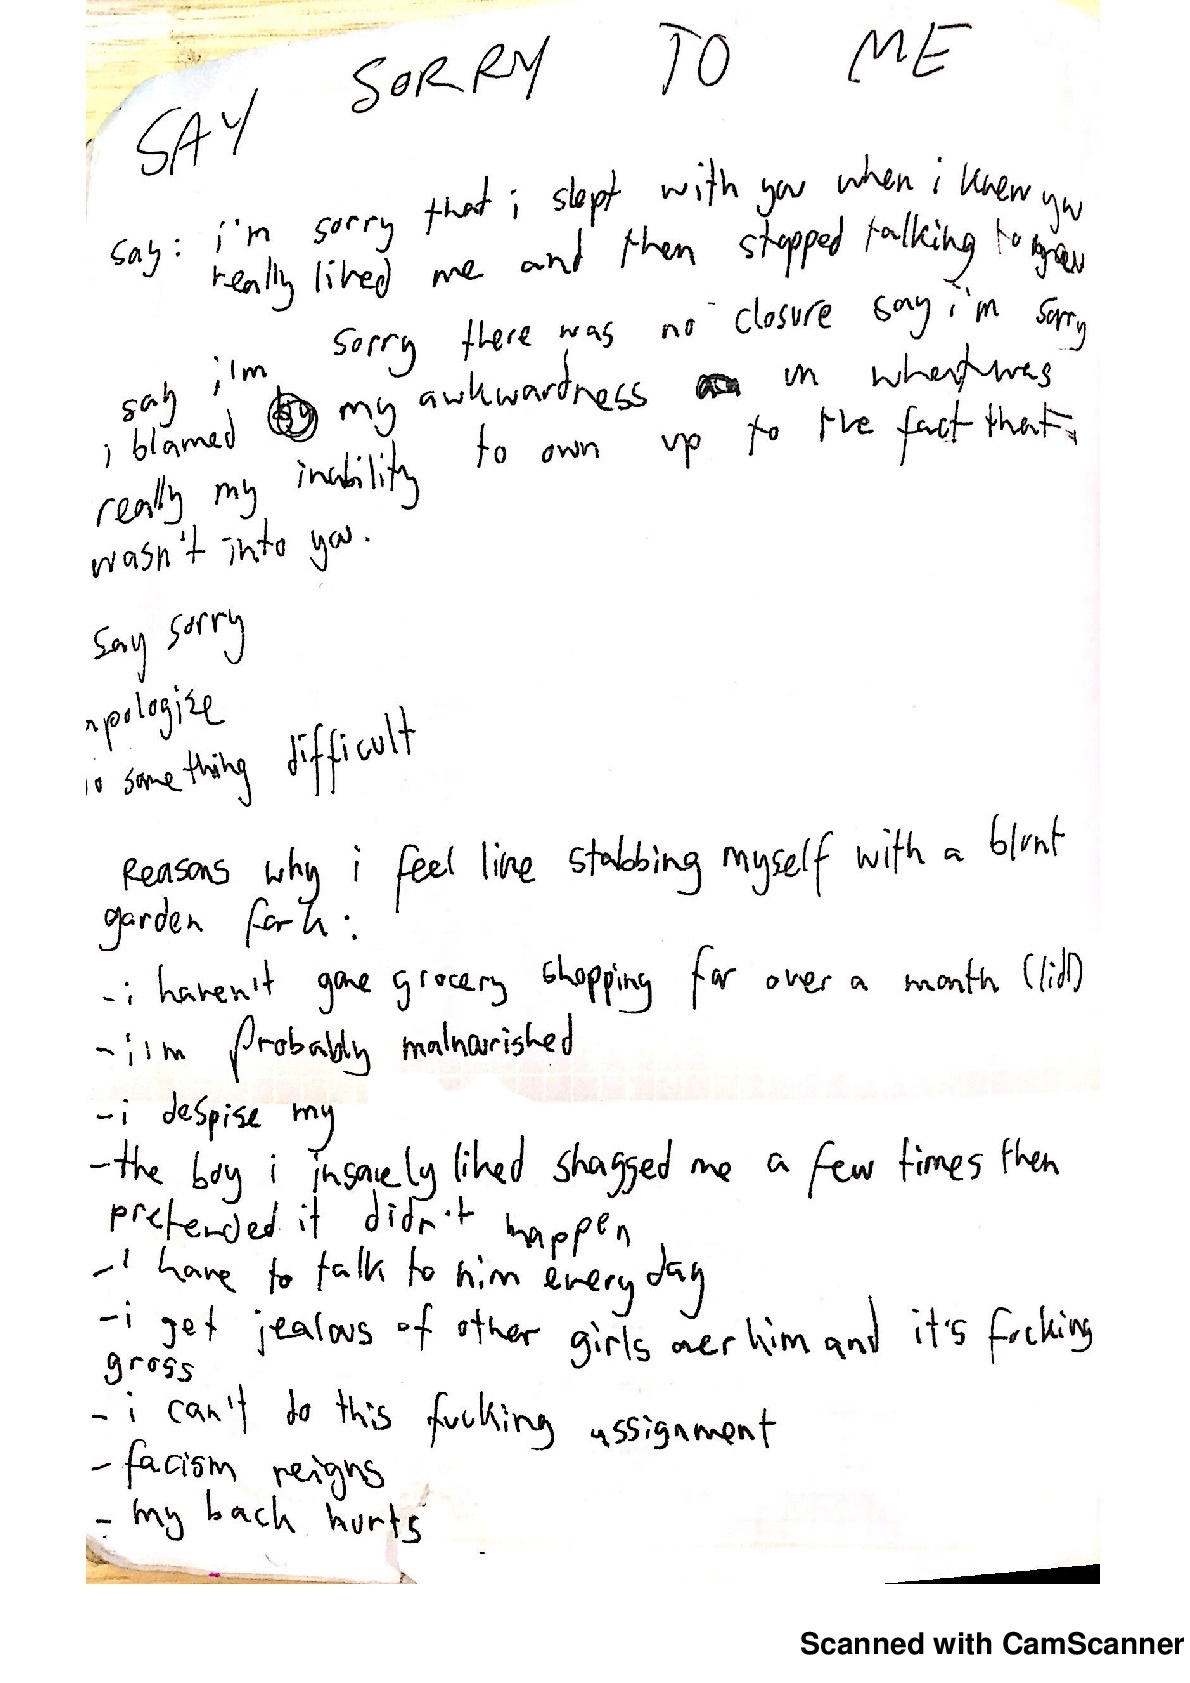 SAY SORRY TO ME
say: i'm sorry that i slept with you when i knew you
really liked me and then stopped talking to you
say i'm sorry there was no closure say i'm sorry
i blamed my awkwardness in what was
really my inability to own up to the fact that i
wasn't into you.
say sorry
apologize
do something difficult
Reasons why i feel like stabbing myself with a blunt
garden fork:
- i haven't gone grocery shopping for over a month (lidl)
- i'm probably malnourished
- i despise my
- the boy i insanely liked shagged me a few times then
pretended it didn't happen
- i have to talk to him every day
- i get jealous of other girls over him and it's fucking
gross
- i can't do this fucking assignment
- facism reigns
- my back hurts
Scanned with CamScanner